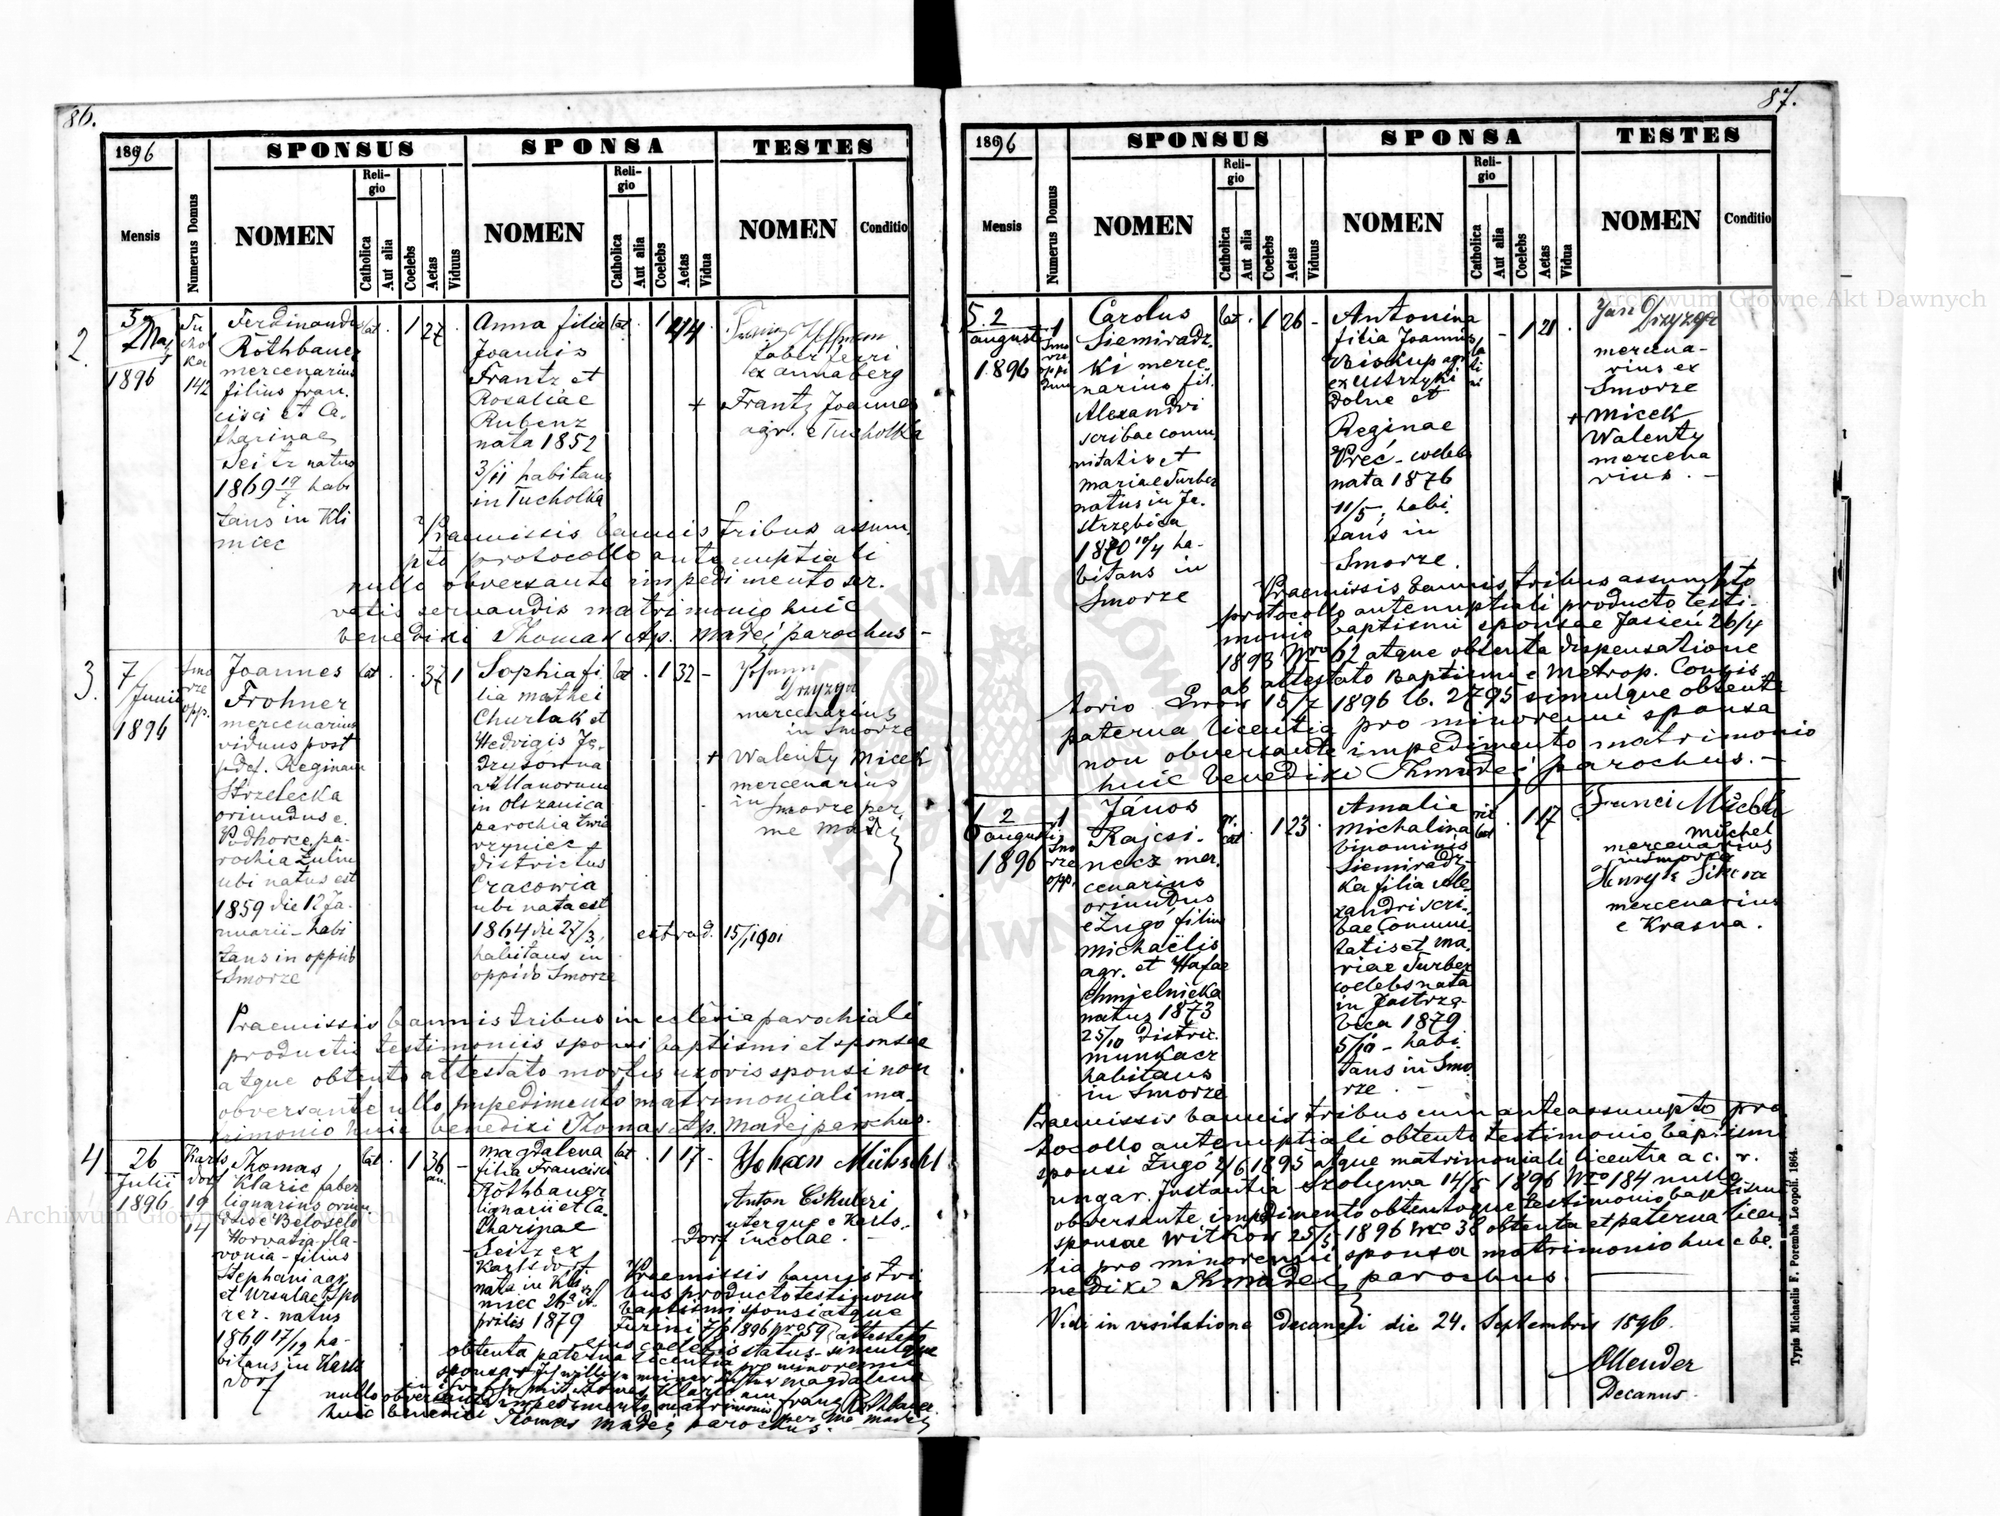 86.
1896
SPONSUS
SPONSA
TESTES
Mensis
Numerus Domus
NOMEN
Religio
Catholica
Aut alia
Coelebs
Aetas
Viduus
NOMEN
Religio
Catholica
Aut alia
Coelebs
Aetas
Vidua
NOMEN
Conditio
2.
5
Maj
1896
Tu
chol
ka
142
Ferdinandus
Rothbauer
mercenarius
filius Fran-
cisci et Ca-
tharinae
Seitz natus
1869 habi
tans in Kli
miec
lat
1
27
Anna filia
Joannis
Frantz et
Rosaliae
Rubenz
nata 1852
3/11 habitans
in Tucholka
lat
1
44
faber ferri
ex Annaberg
+ Frantz Joannes
agr. e Tucholka
Praemissis bannis tribus assum-
pto protocollo antenuptiali
nullo obversante impedimento ser-
vatis servandis matrimonio huic
benedixi Thomas Ap. Madej parochus -
3.
7
Junii
1896
Smo
rze
opp.
Joannes
Frohner
mercenarius
viduus post
def. Reginam
Strzelecka
oriundus e
Podhorce pa-
rochia Zulin
ubi natus est
1859 die 12 Ja-
nuarii - habi
tans in oppido
Smorze
lat
37
1
Sophia fi-
lia Mathei
Churlak et
Hedvigis Je-
drysowna
villanorum
in Olszanica
parochia Zwie
rzyniec
districtus
Cracovia
ubi nata est
1864 die 27/3,
habitans in
oppido Smorze
lat
1
32
-
Johann
Drzyzga
mercenarius
in Smorze
+ Walenty Micek
mercenarius
in Smorze per
me Madej
extrad. 15/1901
Praemissis bannis tribus in eclesia parochiali
productis testimoniis sponsi baptismi et sponsae
atque obtento attestato mortis uxoris sponsi non
obversante ullo impedimento matrimoniali ma-
trimonio huic benedixi Thomas Ap. Madej parochus.
4
26
Julii
1896
Karls
dorf
19
17
Thomas
Klaric faber
lignarius oriun-
dus e Beloselo
Horvatia Sla-
vonia - filius
Stephani agr.
et Ursulae Spo
rer. natus
1860 17/12 ha-
bitans in Karls
dorf
lat
1
36
an.
-
Magdalena
filia Francisci
Rothbauer
lignarii et Ca-
tharinae
Seitz ex
Karlsdorf
nata in Kli
miec 26 A-
prilis 1879
lat
1
17
-
Johan Mühschl
Anton Cskuleri
uterque e Karls-
dorf incolae. -
Praemissis bannis tri
bus producto testimonio
baptismi sponsi atque
obtenta paterna licentia pro minorenni
sponsa
nullo obversante impedimento matrimonio
huic benedixi Thomas Madej parochus.
per me Madej
87.
1896
SPONSUS
SPONSA
TESTES
Mensis
Numerus Domus
NOMEN
Religio
Catholica
Aut alia
Coelebs
Aetas
Viduus
NOMEN
Religio
Catholica
Aut alia
Coelebs
Aetas
Vidua
NOMEN
Conditio
5.
2
august
1896
1
Smo
rze
oppi
dum
Carolus
Siemiradz-
ki merce-
narius fil.
Alexandri
scribae comu-
nitatis et
Mariae Turbez
natus in Ja-
strzębica
1870 10/4 ha-
bitans in
Smorze
lat
1
26
-
Antonina
filia Joannis
Biskup agr.
ex Ustrzyki
Dolne et
Reginae
Preć - coelebs
nata 1876
11/5, habi-
tans in
Smorze.
-
1
21
Jan Drzyzga
mercena-
rius ex
Smorze
+ Micek
Walenty
mercena
rius. -
Praemissis bannis tribus assumpto
protocollo antenuptiali producto testi-
monio baptismi sponsae Jasień 26/4
1893 Nro 62 atque obtenta dispensatione
ab attestato baptismi e Metrop. Consis-
torio Lwow 15/7 1896 lb. 2795 simulque obtenta
paterna licentia pro minorenni sponsa
non obversante impedimento matrimonio
huic benedixi Th Madej parochus. -
6
2
augusti
1896
1
Smo
rze
opp.
János
Kajcsi-
necz mer-
cenarius
oriundus
e Zugó, filius
Michaëlis
agr. et Hafae
Chmielnicka
natus 1873
25/10 distric.
Munkacz
habitans
in Smorze
gr.
cat
1
23
Amalia
Michalina
binominis
Siemiradz-
ka filia Ale-
xandri scri-
bae Commu-
tatis et Ma-
riae Turbez
coelebs nata
in Jastrzę-
bica 1879
5/10 - habi-
tans in Smo
rze. -
rit
lat
1
17
Michel
mercenarius
in Smorze
Henryk Sikora
mercenarius
e Krasna.
Praemissis bannis tribus cum ante assumpto pro-
tocollo antenuptiali obtento testimonio baptismi
sponsi Zugó 2/6 1895 atque matrimoniali licentia a c. r.
ungar. Justantia Szolyma 14/5 1896 Nro 184 nullo
obversante impedimento obtentoque testimonio baptismi
sponsae Witkow 25/5 1896 Nro 38 obtenta et paterna licen-
tia pro minorenni sponsa matrimonio huic be-
nedixi Th Madej parochus.
Vidi in visitatione Decanali die 24. Septembris 1896.
Ollender
Decanus.
Typis Michaelis F. Poremba Leopoli. 1864.
Archiwum Główne Akt Dawnych
Archiwum Główne Akt Dawnych
ARCHIWUM GŁÓWNE
AKT DAWNYCH